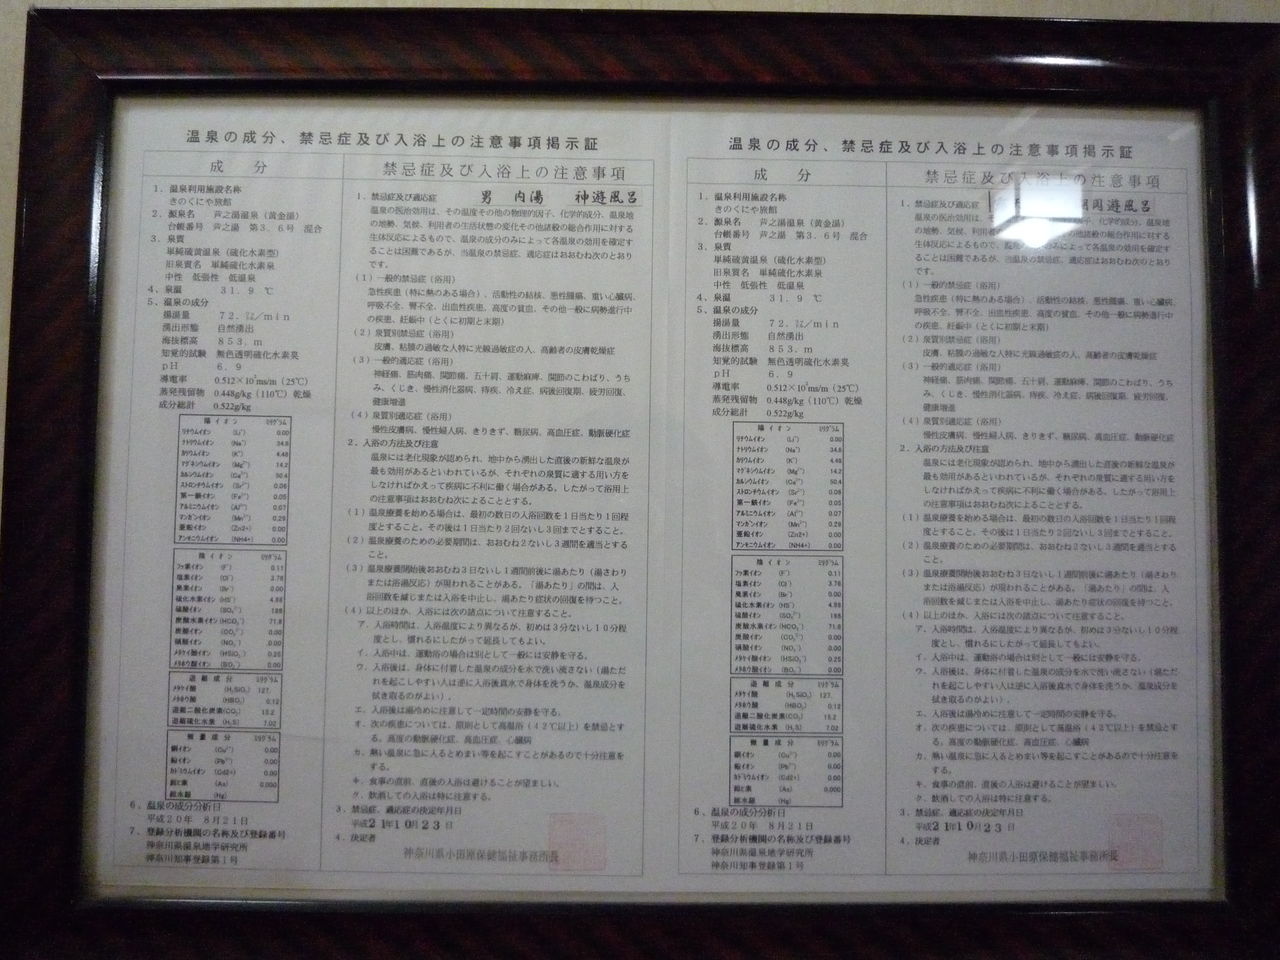 温泉の成分、禁忌症及び入浴上の注意事項掲示証
成 分
1．温泉利用施設名称
きのくにや旅館
2．源泉名 芦之湯温泉（黄金湯）
台帳番号 芦之湯 第3．6号 混合
3．泉質
単純硫黄温泉（硫化水素型）
旧泉質名 単純硫化水素泉
中性 低張性 低温泉
4．泉温 31．9 ℃
5．温泉の成分
揚湯量 72．㍑／min
湧出形態 自然湧出
海抜標高 853．m
知覚的試験 無色透明硫化水素臭
pH 6．9
導電率 0.512×10²ms/m（25℃）
蒸発残留物 0.448g/kg（110℃）乾燥
成分総計 0.522g/kg
陽イオン ミリグラム
リチウムイオン (Li⁺) 0.00
ナトリウムイオン (Na⁺) 34.8
カリウムイオン (K⁺) 4.48
マグネシウムイオン (Mg²⁺) 14.2
カルシウムイオン (Ca²⁺) 50.4
ストロンチウムイオン (Sr²⁺) 0.06
第一鉄イオン (Fe²⁺) 0.05
アルミニウムイオン (Al³⁺) 0.07
マンガンイオン (Mn²⁺) 0.29
亜鉛イオン (Zn2+) 0.00
アンモニウムイオン (NH4+) 0.00
陰イオン ミリグラム
フッ素イオン (F⁻) 0.11
塩素イオン (Cl⁻) 3.76
臭素イオン (Br⁻) 0.00
硫化水素イオン (HS⁻) 4.98
硫酸イオン (SO₄²⁻)
炭酸水素イオン (HCO₃⁻) 71.8
炭酸イオン (CO₃²⁻) 0.00
硝酸イオン (NO₃⁻) 0.00
メタケイ酸イオン (HSiO₃⁻) 0.25
メタホウ酸イオン (BO₂⁻) 0.00
遊離成分 ミリグラム
メタケイ酸 (H₂SiO₃) 127.
メタホウ酸 (HBO₂) 0.12
遊離二酸化炭素(CO₂) 15.2
遊離硫化水素 (H₂S) 7.02
微量成分 ミリグラム
銅イオン (Cu²⁺) 0.00
鉛イオン (Pb²⁺) 0.00
カドミウムイオン (Cd2+) 0.00
総ヒ素 (As) 0.000
総水銀 (Hg)
6．温泉の成分分析日
平成20年 8月21日
7．登録分析機関の名称及び登録番号
神奈川県温泉地学研究所
神奈川県知事登録第1号
禁忌症及び入浴上の注意事項
1．禁忌症及び適応症 男 内湯 神遊風呂
温泉の医治効用は、その温度その他の物理的因子、化学的成分、温泉地
の地勢、気候、利用者の生活状態の変化その他諸般の総合作用に対する
生体反応によるもので、温泉の成分のみによって各温泉の効用を確定す
ることは困難であるが、当温泉の禁忌症、適応症はおおむね次のとおり
です。
（1）一般的禁忌症（浴用）
急性疾患（特に熱のある場合）、活動性の結核、悪性腫瘍、重い心臓病、
呼吸不全、腎不全、出血性疾患、高度の貧血、その他一般に病勢進行中
の疾患、妊娠中（とくに初期と末期）
（2）泉質別禁忌症（浴用）
皮膚、粘膜の過敏な人特に光線過敏症の人、高齢者の皮膚乾燥症
（3）一般的適応症（浴用）
神経痛、筋肉痛、関節痛、五十肩、運動麻痺、関節のこわばり、うち
み、くじき、慢性消化器病、痔疾、冷え症、病後回復期、疲労回復、
健康増進
（4）泉質別適応症（浴用）
慢性皮膚病、慢性婦人病、きりきず、糖尿病、高血圧症、動脈硬化症
2．入浴の方法及び注意
温泉には老化現象が認められ、地中から湧出した直後の新鮮な温泉が
最も効用があるといわれているが、それぞれの泉質に適する用い方を
しなければかえって疾病に不利に働く場合がある。したがって浴用上
の注意事項はおおむね次によることとする。
（1）温泉療養を始める場合は、最初の数日の入浴回数を1日当たり1回程
度とすること。その後は1日当たり2回ないし3回までとすること。
（2）温泉療養のための必要期間は、おおむね2ないし3週間を適当とする
こと。
（3）温泉療養開始後おおむね3日ないし1週間前後に湯あたり（湯さわり
または浴湯反応）が現われることがある。「湯あたり」の間は、入
浴回数を減じまたは入浴を中止し、湯あたり症状の回復を待つこと。
（4）以上のほか、入浴には次の諸点について注意すること。
ア．入浴時間は、入浴温度により異なるが、初めは3分ないし10分程
度とし、慣れるにしたがって延長してもよい。
イ．入浴中は、運動浴の場合は別として一般には安静を守る。
ウ．入浴後は、身体に付着した温泉の成分を水で洗い流さない（湯ただ
れを起こしやすい人は逆に入浴後真水で身体を洗うか、温泉成分を
拭き取るのがよい）。
エ．入浴後は湯冷めに注意して一定時間の安静を守る。
オ．次の疾患については、原則として高温浴（42℃以上）を禁忌とす
る。高度の動脈硬化症、高血圧症、心臓病
カ．熱い温泉に急に入るとめまい等を起こすことがあるので十分注意を
する。
キ．食事の直前、直後の入浴は避けることが望ましい。
ク．飲酒しての入浴は特に注意する。
3．禁忌症、適応症の決定年月日
平成21年10月23日
4．決定者
神奈川県小田原保健福祉事務所長
温泉の成分、禁忌症及び入浴上の注意事項掲示証
成 分
1．温泉利用施設名称
きのくにや旅館
2．源泉名 芦之湯温泉（黄金湯）
台帳番号 芦之湯 第3．6号 混合
3．泉質
単純硫黄温泉（硫化水素型）
旧泉質名 単純硫化水素泉
中性 低張性 低温泉
4．泉温 31．9 ℃
5．温泉の成分
揚湯量 72．㍑／min
湧出形態 自然湧出
海抜標高 853．m
知覚的試験 無色透明硫化水素臭
pH 6．9
導電率 0.512×10²ms/m（25℃）
蒸発残留物 0.448g/kg（110℃）乾燥
成分総計 0.522g/kg
陽イオン ミリグラム
リチウムイオン (Li⁺) 0.00
ナトリウムイオン (Na⁺) 34.8
カリウムイオン (K⁺) 4.48
マグネシウムイオン (Mg²⁺) 14.2
カルシウムイオン (Ca²⁺) 50.4
ストロンチウムイオン (Sr²⁺) 0.06
第一鉄イオン (Fe²⁺) 0.05
アルミニウムイオン (Al³⁺) 0.07
マンガンイオン (Mn²⁺) 0.29
亜鉛イオン (Zn2+) 0.00
アンモニウムイオン (NH4+) 0.00
陰イオン ミリグラム
フッ素イオン (F⁻) 0.11
塩素イオン (Cl⁻) 3.76
臭素イオン (Br⁻) 0.00
硫化水素イオン (HS⁻) 4.98
硫酸イオン (SO₄²⁻)
炭酸水素イオン (HCO₃⁻) 71.8
炭酸イオン (CO₃²⁻) 0.00
硝酸イオン (NO₃⁻) 0.00
メタケイ酸イオン (HSiO₃⁻) 0.25
メタホウ酸イオン (BO₂⁻) 0.00
遊離成分 ミリグラム
メタケイ酸 (H₂SiO₃) 127.
メタホウ酸 (HBO₂) 0.12
遊離二酸化炭素(CO₂) 15.2
遊離硫化水素 (H₂S) 7.02
微量成分 ミリグラム
銅イオン (Cu²⁺) 0.00
鉛イオン (Pb²⁺) 0.00
カドミウムイオン (Cd2+) 0.00
総ヒ素 (As) 0.000
総水銀 (Hg)
6．温泉の成分分析日
平成20年 8月21日
7．登録分析機関の名称及び登録番号
神奈川県温泉地学研究所
神奈川県知事登録第1号
禁忌症及び入浴上の注意事項
1．禁忌症及び適応症 周遊風呂
温泉の医治効用は、そ 、化学的成分、温泉地
の地勢、気候、利用者の 他諸般の総合作用に対する
生体反応によるもので、温泉の成分のみによって各温泉の効用を確定す
ることは困難であるが、当温泉の禁忌症、適応症はおおむね次のとおり
です。
（1）一般的禁忌症（浴用）
急性疾患（特に熱のある場合）、活動性の結核、悪性腫瘍、重い心臓病、
呼吸不全、腎不全、出血性疾患、高度の貧血、その他一般に病勢進行中
の疾患、妊娠中（とくに初期と末期）
（2）泉質別禁忌症（浴用）
皮膚、粘膜の過敏な人特に光線過敏症の人、高齢者の皮膚乾燥症
（3）一般的適応症（浴用）
神経痛、筋肉痛、関節痛、五十肩、運動麻痺、関節のこわばり、うち
み、くじき、慢性消化器病、痔疾、冷え症、病後回復期、疲労回復、
健康増進
（4）泉質別適応症（浴用）
慢性皮膚病、慢性婦人病、きりきず、糖尿病、高血圧症、動脈硬化症
2．入浴の方法及び注意
温泉には老化現象が認められ、地中から湧出した直後の新鮮な温泉が
最も効用があるといわれているが、それぞれの泉質に適する用い方を
しなければかえって疾病に不利に働く場合がある。したがって浴用上
の注意事項はおおむね次によることとする。
（1）温泉療養を始める場合は、最初の数日の入浴回数を1日当たり1回程
度とすること。その後は1日当たり2回ないし3回までとすること。
（2）温泉療養のための必要期間は、おおむね2ないし3週間を適当とする
こと。
（3）温泉療養開始後おおむね3日ないし1週間前後に湯あたり（湯さわり
または浴湯反応）が現われることがある。「湯あたり」の間は、入
浴回数を減じまたは入浴を中止し、湯あたり症状の回復を待つこと。
（4）以上のほか、入浴には次の諸点について注意すること。
ア．入浴時間は、入浴温度により異なるが、初めは3分ないし10分程
度とし、慣れるにしたがって延長してもよい。
イ．入浴中は、運動浴の場合は別として一般には安静を守る。
ウ．入浴後は、身体に付着した温泉の成分を水で洗い流さない（湯ただ
れを起こしやすい人は逆に入浴後真水で身体を洗うか、温泉成分を
拭き取るのがよい）。
エ．入浴後は湯冷めに注意して一定時間の安静を守る。
オ．次の疾患については、原則として高温浴（42℃以上）を禁忌とす
る。高度の動脈硬化症、高血圧症、心臓病
カ．熱い温泉に急に入るとめまい等を起こすことがあるので十分注意を
する。
キ．食事の直前、直後の入浴は避けることが望ましい。
ク．飲酒しての入浴は特に注意する。
3．禁忌症、適応症の決定年月日
平成21年10月23日
4．決定者
神奈川県小田原保健福祉事務所長